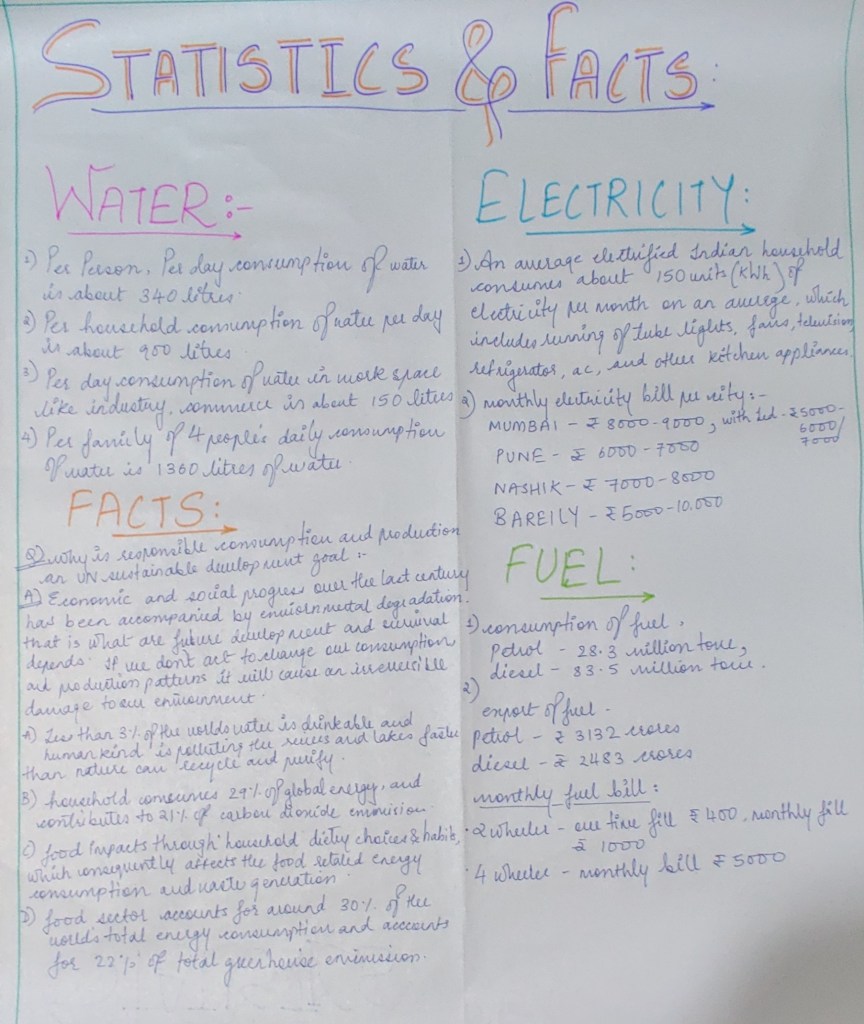 STATISTICS & FACTS:
WATER:-
1) Per Person, Per day consumption of water
is about 340 litres.
2) Per household consumption of water per day
is about 900 litres
3) Per day consumption of water in work space
like industry, commerce is about 150 litres
4) Per family of 4 people's daily consumption
of water is 1360 litres of water.
FACTS:
Q) why is responsible consumption and production
an UN sustainable development goal :-
A) Economic and social progress over the last century
has been accompanied by enviornmental degradation.
that is what are future development and survival
depends. If we don't act to change out consumption
and production patterns it will cause an irreversible
damage to our environment.
A) Less than 3% of the worlds water is drinkable and
human kind is polluting the rivers and lakes faster
than nature can recycle and purify.
B) household consumes 29% of global energy, and
contributes to 21% of carbon dioxide emmision.
C) food impacts through household dietry choices & habits,
which consequently affects the food retaled energy
consumption and waste generation.
D) food sector accounts for around 30% of the
world's total energy consumption and accounts
for 22% of total greenhouse emmission.
ELECTRICITY:
1) An average elettrified Indian household
consumes about 150 units (KWh) of
electricity per month on an average, which
includes running of tube lights, fans, television
refrigerator, ac, and other kitchen appliances.
2) monthly electricity bill per city:-
MUMBAI - ₹ 8000-9000, with - ₹5000-
6000/
7000
PUNE - ₹ 6000 - 7000
NASHIK - ₹ 7000-8000
BAREILY - ₹ 5000-10.000
FUEL:
1) consumption of fuel,
Petrol - 28.3 million tone,
diesel - 83.5 million tone.
2)
export of fuel.
Petrol - ₹ 3132 crores
diesel - ₹ 2483 crores
monthly fuel bill:
• 2 wheeler - one time fill ₹ 400, monthly fill
₹ 1000
• 4 wheeler - monthly bill ₹ 5000